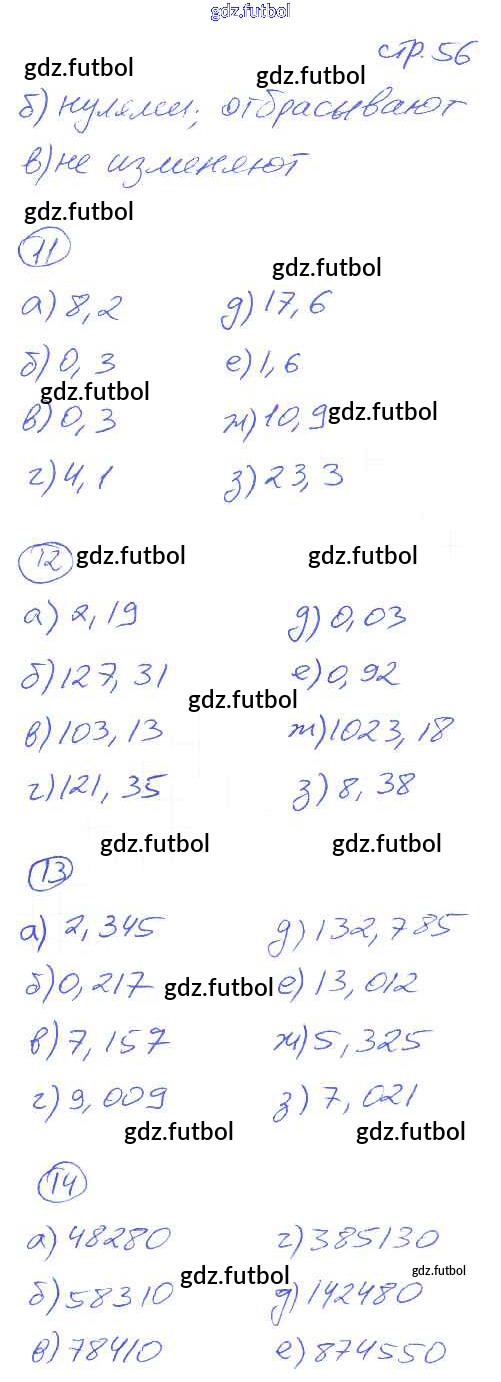 gdz.futbol
стр. 56
gdz.futbol gdz.futbol
б) нулями; отбрасывают
в) не изменяют
gdz.futbol
11 gdz.futbol
а) 8,2 д) 17,6
б) 0,3 е) 1,6
gdz.futbol
в) 0,3 ж) 10,9 gdz.futbol
г) 4,1 з) 23,3
12 gdz.futbol gdz.futbol
а) 2,19 д) 0,03
б) 127,31 е) 0,92
gdz.futbol
в) 103,13 ж) 1023,18
г) 121,35 з) 8,38
gdz.futbol gdz.futbol
13
а) 2,345 д) 132,785
б) 0,217 gdz.futbol е) 13,012
в) 7,157 ж) 5,325
г) 9,009 з) 7,021
gdz.futbol gdz.futbol
14
а) 48280 г) 385130
gdz.futbol gdz.futbol
б) 58310 д) 142480
в) 78410 е) 874550